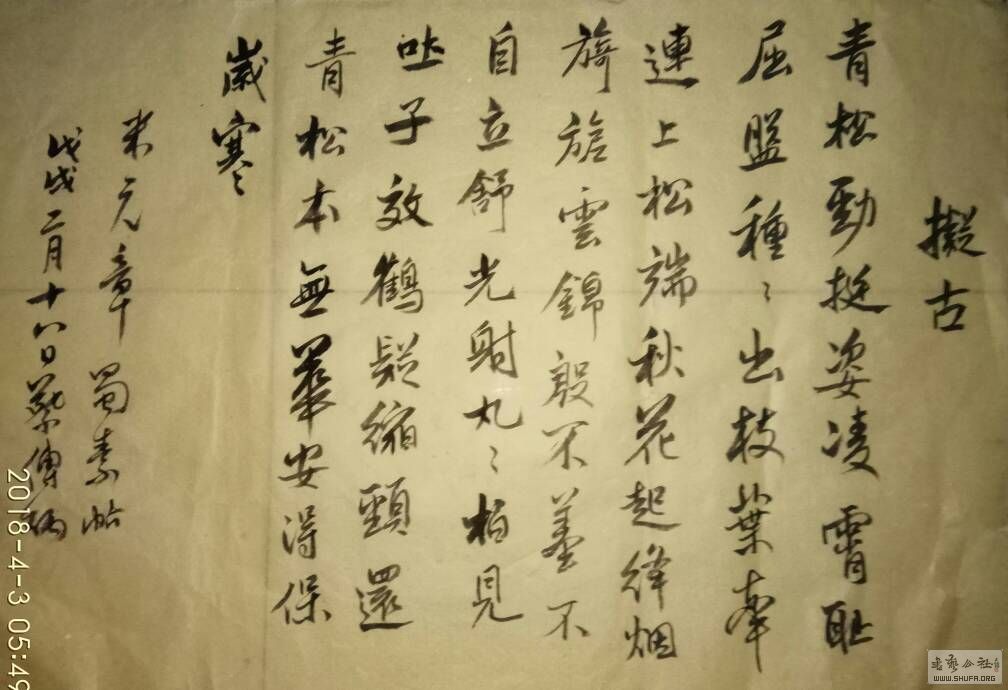 擬古
青松勁挺姿凌霄恥
屈盤種〻出枝葉牽
連上松端秋花起絳烟
旖旎雲錦殷不羞不
自立舒光射丸〻柏見
吐子效鶴疑縮頸還
青松本無華安得保
歲寒
米元章 蜀素帖
戊戌二月十八日
2018-4-3 05:49
WWW.SHUFA.ORG